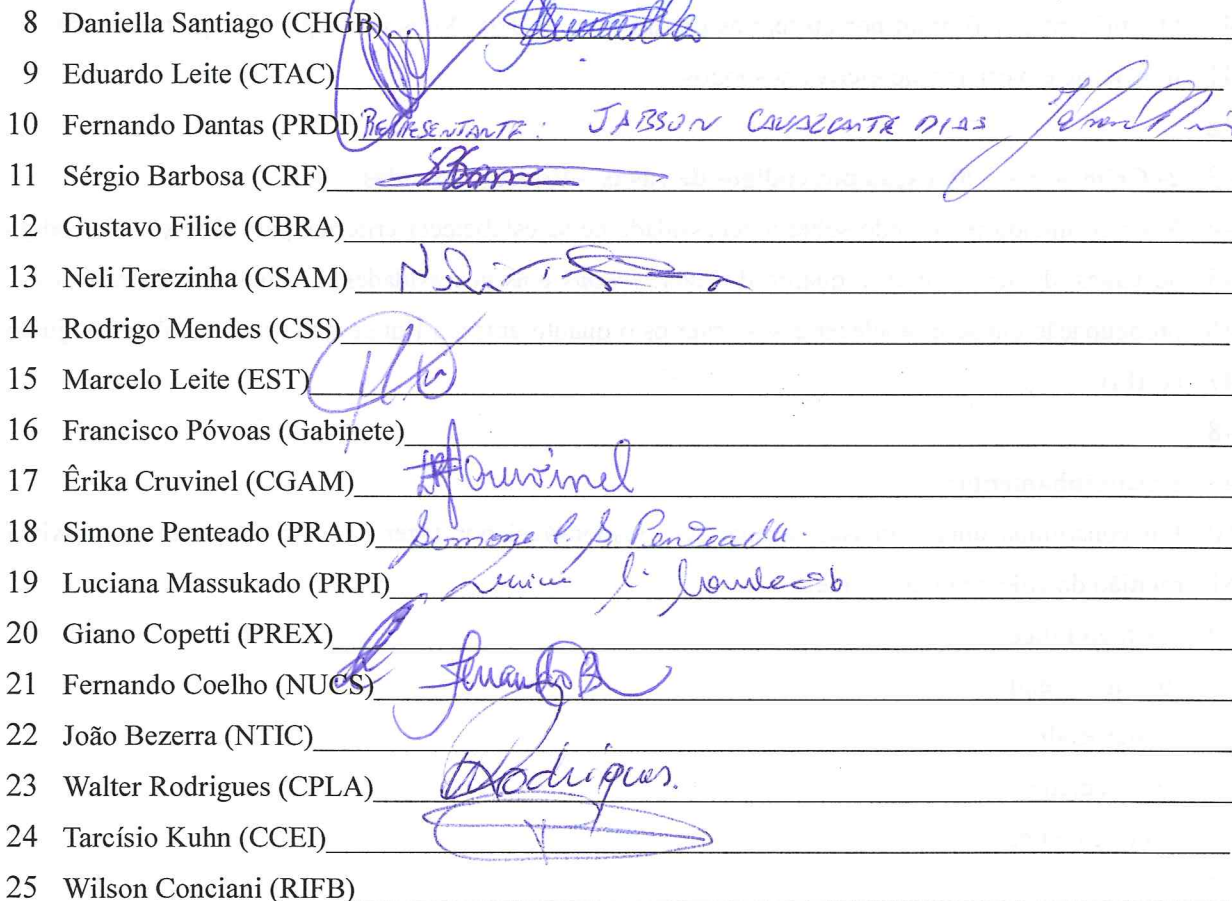 8 Daniella Santiago (CHGB)
9 Eduardo Leite (CTAC)
10 Fernando Dantas (PRDI) REPRESENTANTE: JABSON CAVALCANTE DIAS
11 Sérgio Barbosa (CRF)
12 Gustavo Filice (CBRA)
13 Neli Terezinha (CSAM) Neli
14 Rodrigo Mendes (CSS)
15 Marcelo Leite (EST)
16 Francisco Póvoas (Gabinete)
17 Êrika Cruvinel (CGAM) Cruvinel
18 Simone Penteado (PRAD) Simone P. S. Penteado
19 Luciana Massukado (PRPI)
20 Giano Copetti (PREX)
21 Fernando Coelho (NUCS)
22 João Bezerra (NTIC)
23 Walter Rodrigues (CPLA) WRodrigues.
24 Tarcísio Kuhn (CCEI)
25 Wilson Conciani (RIFB)